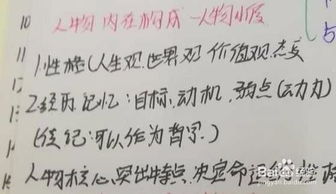 10 人物内在构成—人物小传
11 1.性格(人生观.世界观 价值观.态度
2.经历记忆:目标.动机.弱点(动力)
(传记:可以作为背景.)
人物核心.突出特点.决定命运的性格
与
Baidu经验